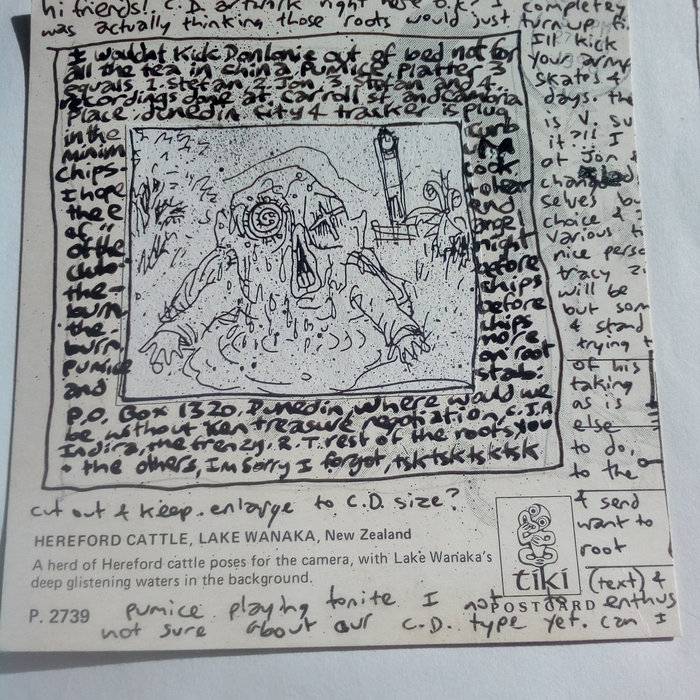 hi friends!. C.D. artwork right here o.k.? I
was actually thinking those roots would just
I wouldnt kick Danlanie out of bed not for
all the tea in china pumice, platter 3
equals 1. stefan 2. Jon 3. stefan 4.
recordings done at. Carroll st and
place. dunedin city & tracker is plug
in the
minim
chips.
I hope
the
of
of the
club
the
burn
the
burn
pumice
and
curb
cook
to hear
end
angel
night
before
chips
before
chips
more
on root
stab:
P.O. Box 1320, Dunedin, where would we
be without Ken treasure negotiation, C.I.A
Indira, the frenzy. R.T. rest of the roots you
& the others, Im sorry I forgot, tsk tsk tsk tsk tsk
cut out & keep. enlarge to C.D. size?
completely
turn up
I'll kick
your army
skates &
days. the
is V. su
it?!! I
at Jon &
changed
selves bu
choice &
various
nice perso
tracy zi
will be
but som
& stand
trying t
of his
taking
as is
else
to do,
to the
& send
want to
root
(text) &
enthus
HEREFORD CATTLE, LAKE WANAKA, New Zealand
A herd of Hereford cattle poses for the camera, with Lake Wanaka's
deep glistening waters in the background.
tiki
POSTCARD
P. 2739
pumice playing tonite I not
not sure about our C.D. type yet. can I